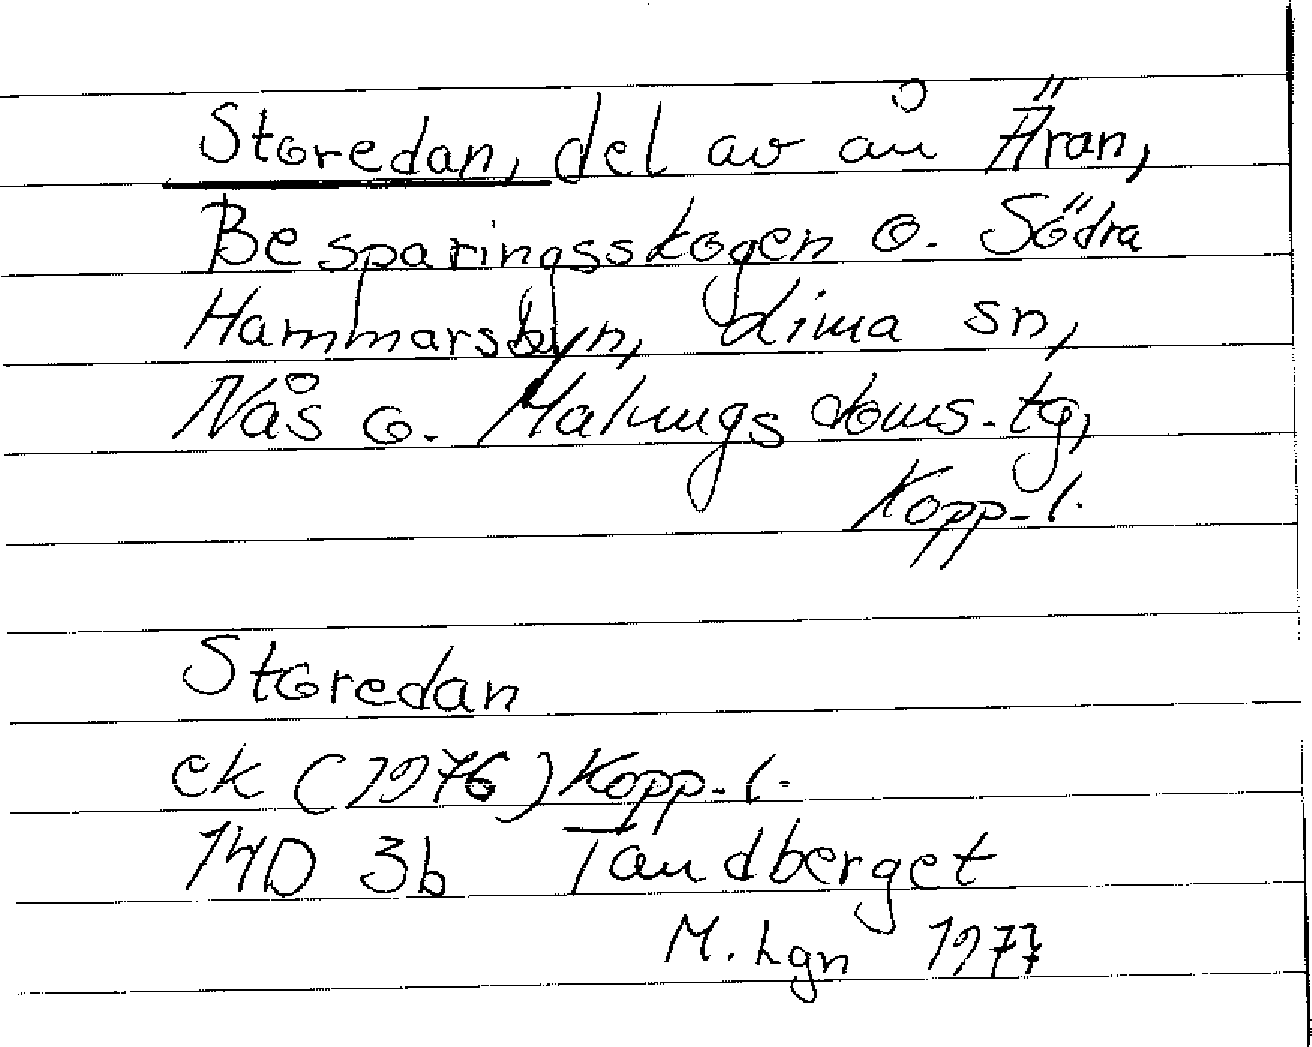 Storedan, del av ån Äran,
Besparingsskogen o. Södra
Hammarsbyn, Lima sn,
Nås o. Malungs doms.tg,
Kopp-l.
Storedan
ek (1976) Kopp-l.
14D 3b Tandberget
M. Lgn 1977